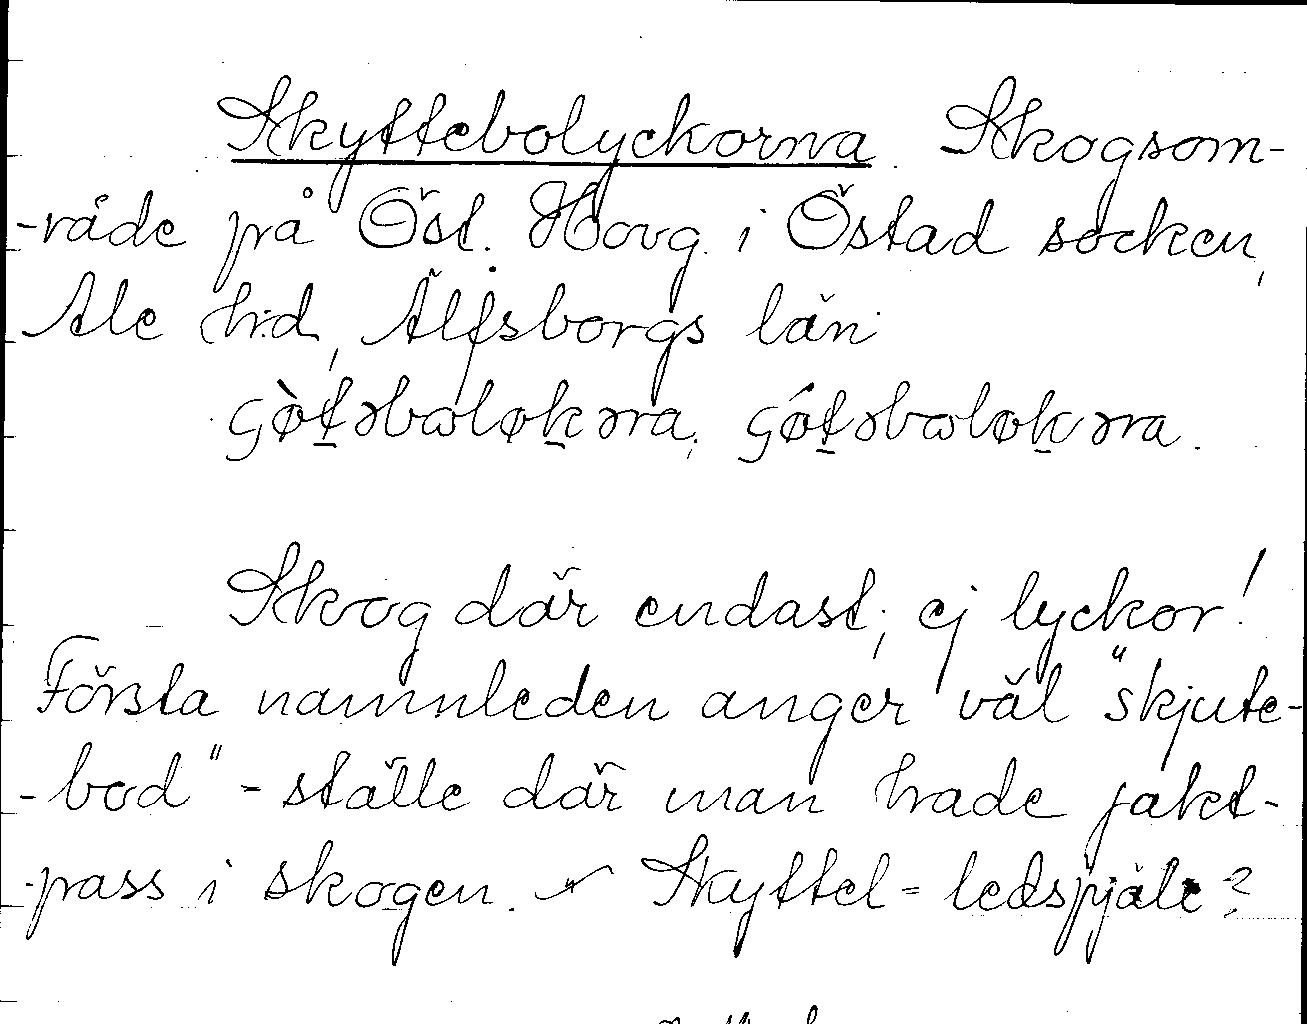 Skyttebolyckorna. Skogsom-
-råde på Öst. Hovg. i Östad socken,
Ale hrd, Älfsborgs län
Skog där endast, ej lyckor!
Första namnleden anger väl "skjute-
-bod" - ställe där man hade jakt-
-pass i skogen. Skyttel = ledspjäle?